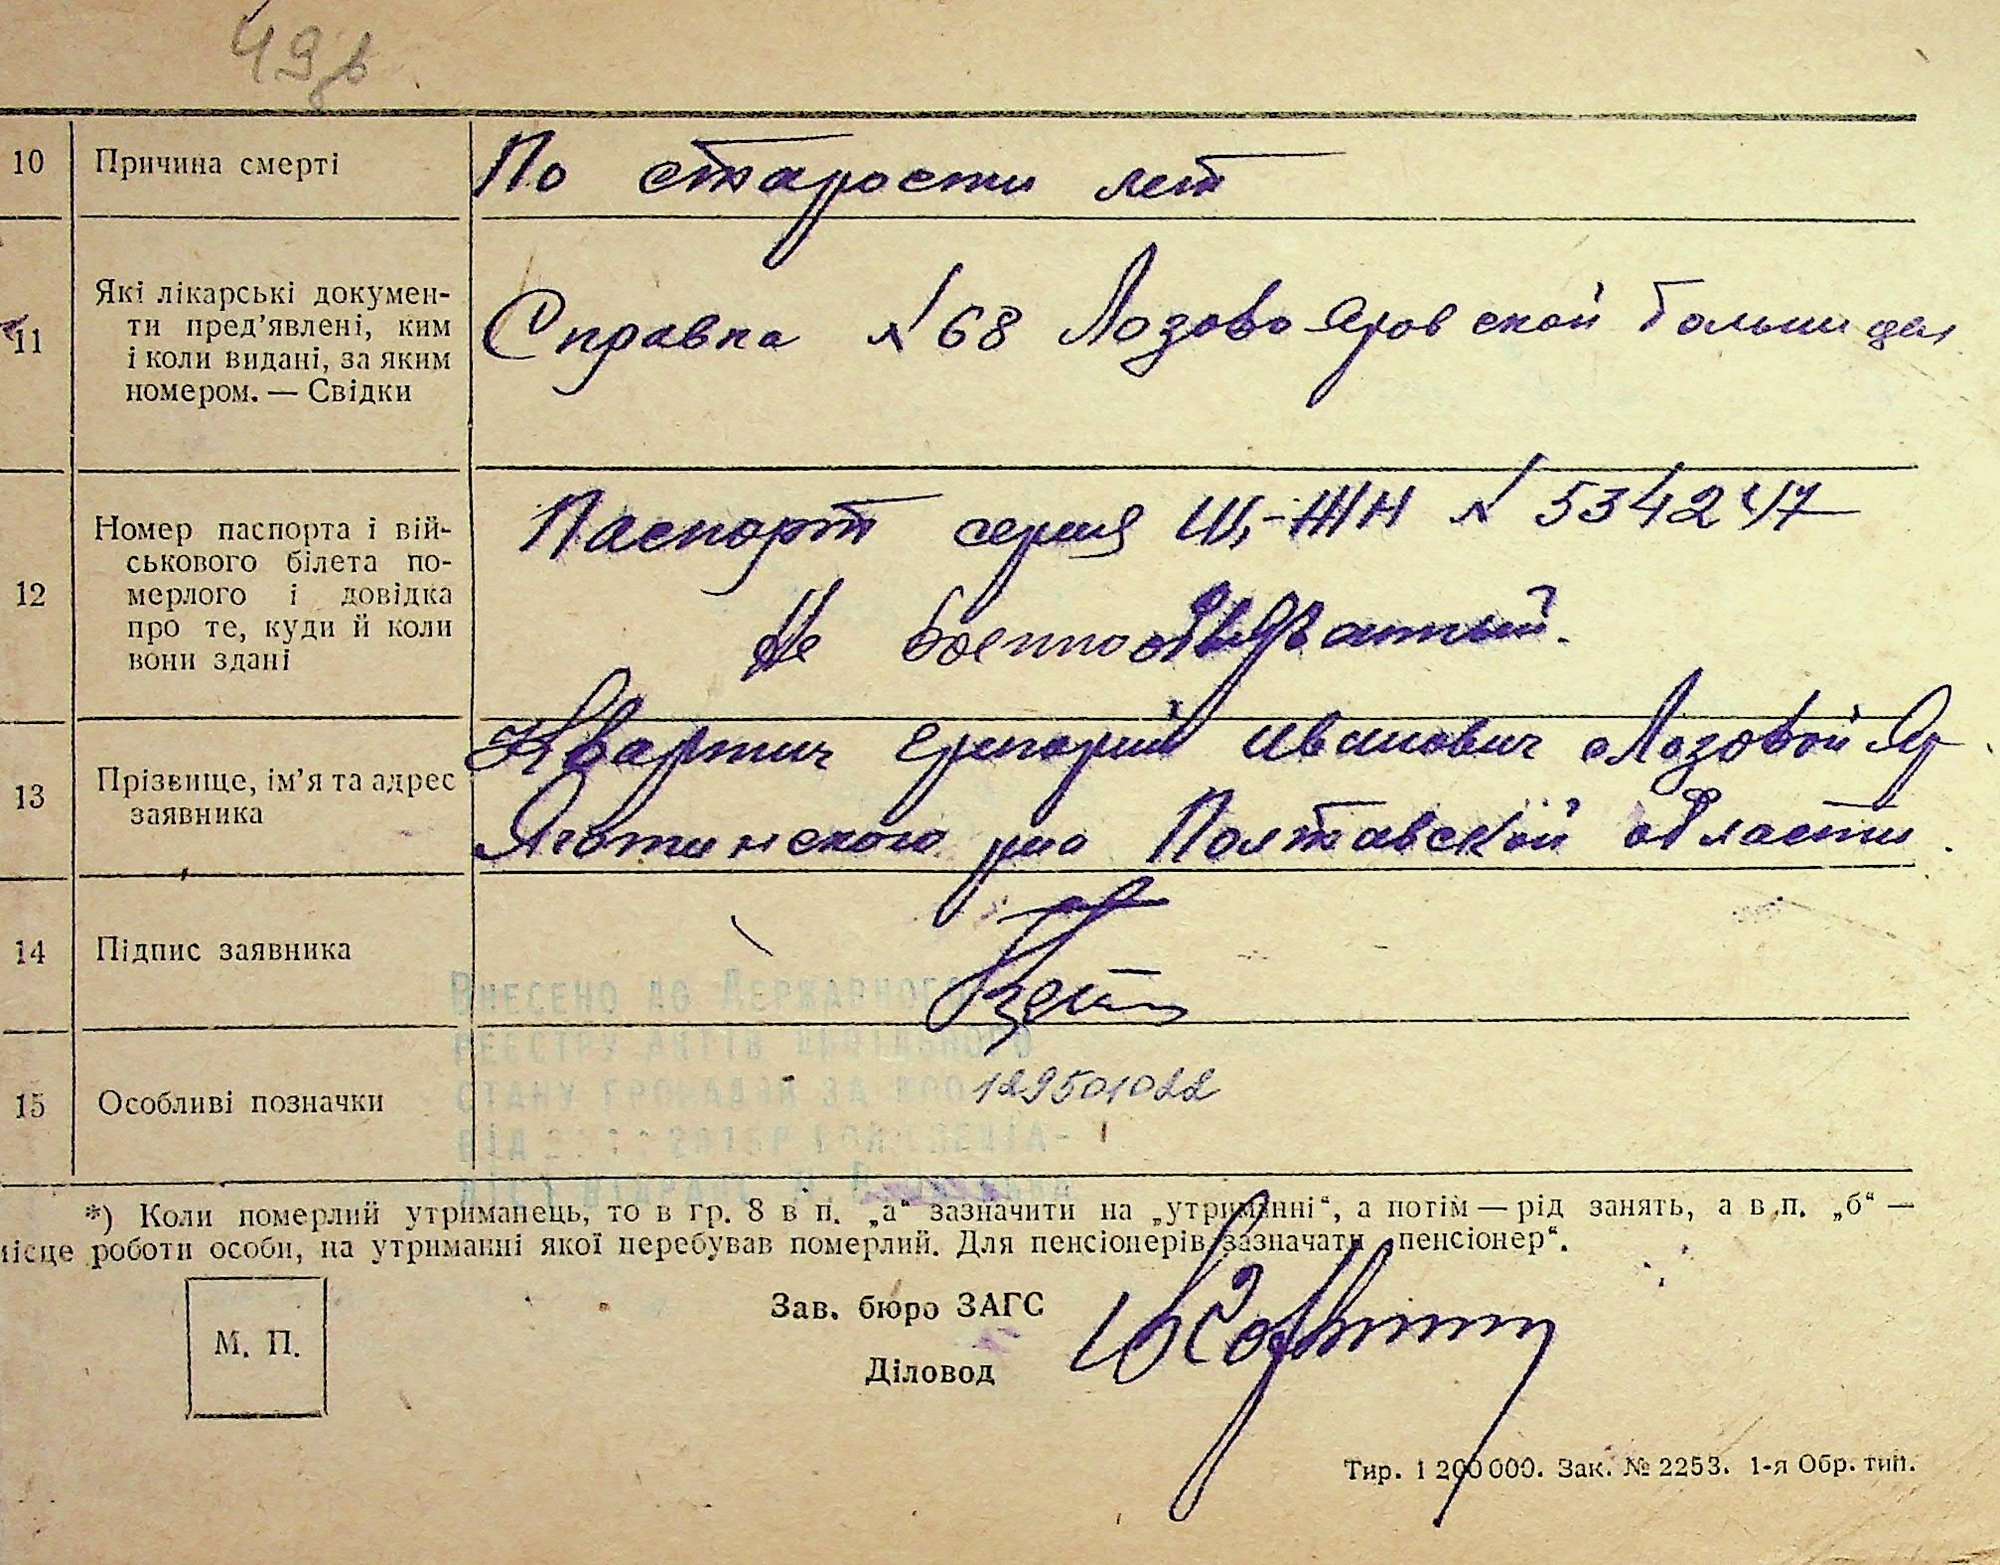 49
10 Причина смерті По старости лет
11 Які лікарські докумен-
ти пред’явлені, ким
і коли видані, за яким
номером. — Свідки
Справка № 68 Лозово Яровской больницы
12 Номер паспорта і вій-
ськового білета по-
мерлого і довідка
про те, куди й коли
вони здані
Паспорт серия Ш-ЖН № 534247
Не военнообязанный.
13 Прізвище, ім’я та адрес
заявника
Григорий Иванович Лозовой Яр
Яготинского р-на Полтавской области.
14 Підпис заявника
Внесено до Державного
реєстру актів цивільного
стану громадян за
15 Особливі позначки 129501022
*) Коли померлий утриманець, то в гр. 8 в п. „а“ зазначити на „утриманні“, а потім — рід занять, а в п. „б“ —
місце роботи особи, на утриманні якої перебував померлий. Для пенсіонерів зазначати „пенсіонер“.
М. П.
Зав. бюро ЗАГС
Діловод
Тир. 1 200 000. Зак. № 2253. 1-я Обр. тип.